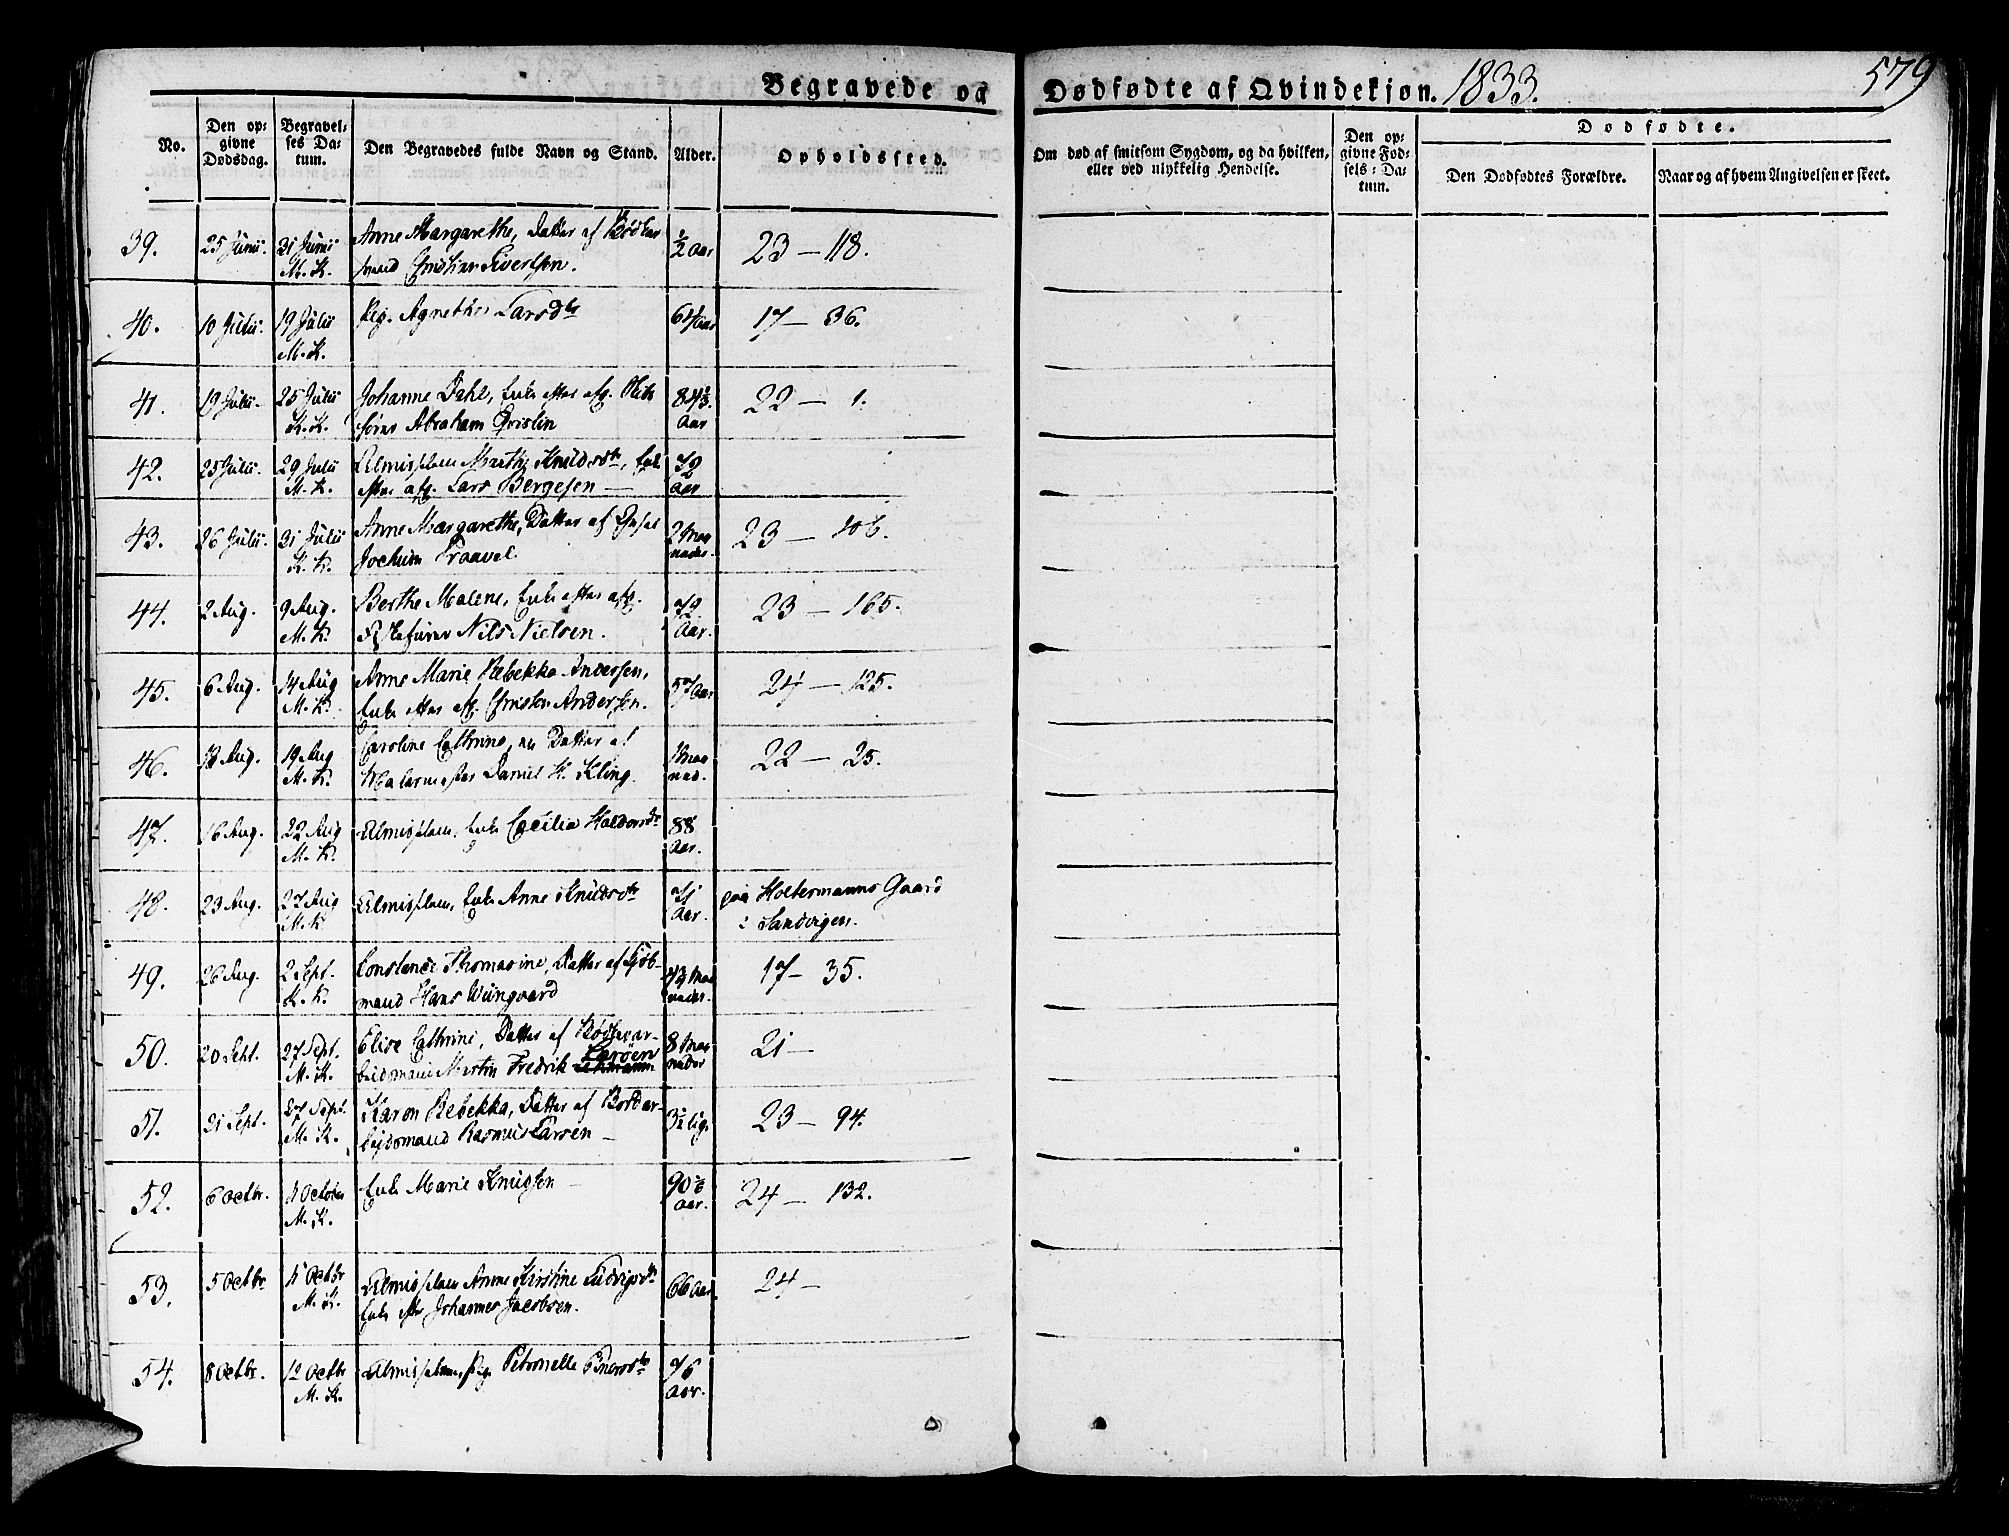 Begravede og Dødfødte af Qvindekjøn. 1833. 579
No.
Den opgivne Dødsdag.
Begravelses Datum.
Den Begravedes fulde Navn og Stand.
Alder.
Opholdssted.
Om død af smitsom Sygdom, og da hvilken, eller ved ulykkelig Hendelse.
Den opgivne Fødsels-Datum.
Dødfødte.
Den Dødfødtes Forældre.
Naar og af hvem Angivelsen er skeet.
39. 25 Junii 31 Junii Anne Margarethe, Datter af 1/2 Aar 23 — 118.
M. K. Christian Sivertsen.
40. 10 Julii. 19 Julii Pig. Agnethe Larsdtr 61 Aar 17 — 36.
M. K.
41. 19 Julii. 25 Julii Johanne Dahl, Enke efter afg. 22 — 1.
K. K. Abraham Aar
42. 25 Julii. 29 Julii Marthe Knudsdtr, Enke 72
M. K. efter afg. Lars Bergesen — Aar
43. 26 Julii. 31 Julii Anne Margarethe, Datter af 2 Maa 23 — 106.
K. K. Jochum Traavel. neder.
44. 2 Aug. 9 Aug. Berthe Malene, Enke efter afg. 72 23 — 165.
M. K. Nils Nielsen. Aar.
45. 6 Aug. 14 Aug Anne Marie Rebekka Andersen, 57 Aar 24 — 125.
M. K. Enke efter afg. Christen Andersen.
46. 18 Aug. 19 Aug Caroline Cathrine, Datter af Maa 22 — 25.
M. K. Malermester Daniel H. Kling. ned.
47. 16 Aug. 22 Aug Almisslem. Enke Cecilia Haldorsdr 88
M. K. Aar.
48. 23 Aug. 27 Aug Almisslem, Enke Anne Knudsdtr 71 paa Holtermanns Gaard
M. K. Aar. i Sandvigen.
49. 26 Aug. 2 Sept. Constance Thomasine, Datter af Sjøb- Maa 17 — 35.
K. K. mand Hans Wiingaard neder.
50. 20 Sept. 27 Sept. Elise Cathrine, Datter af 8 Maa 21 —
Larsen
M. K. Martin Fredrik neder
51. 21 Sept. 27 Sept. Karen Rebekka, Datter af Bordar- 23 — 94.
M. K. bejdsmand Rasmus Larsen —
52. 6 Octbr. October Enke Marie Knudsen — 90 24 — 132.
M. K. Aar.
53. 5 Octbr. Octbr Almisslem Anne Kirstine Ludvigsdtr 66 Aar. 24 —
M. K. Enke efter Johannes Jacobsen.
54. 8 Octbr. 12 Octbr Almisslem, Pig. Petronelle 76
M. K. Aar.